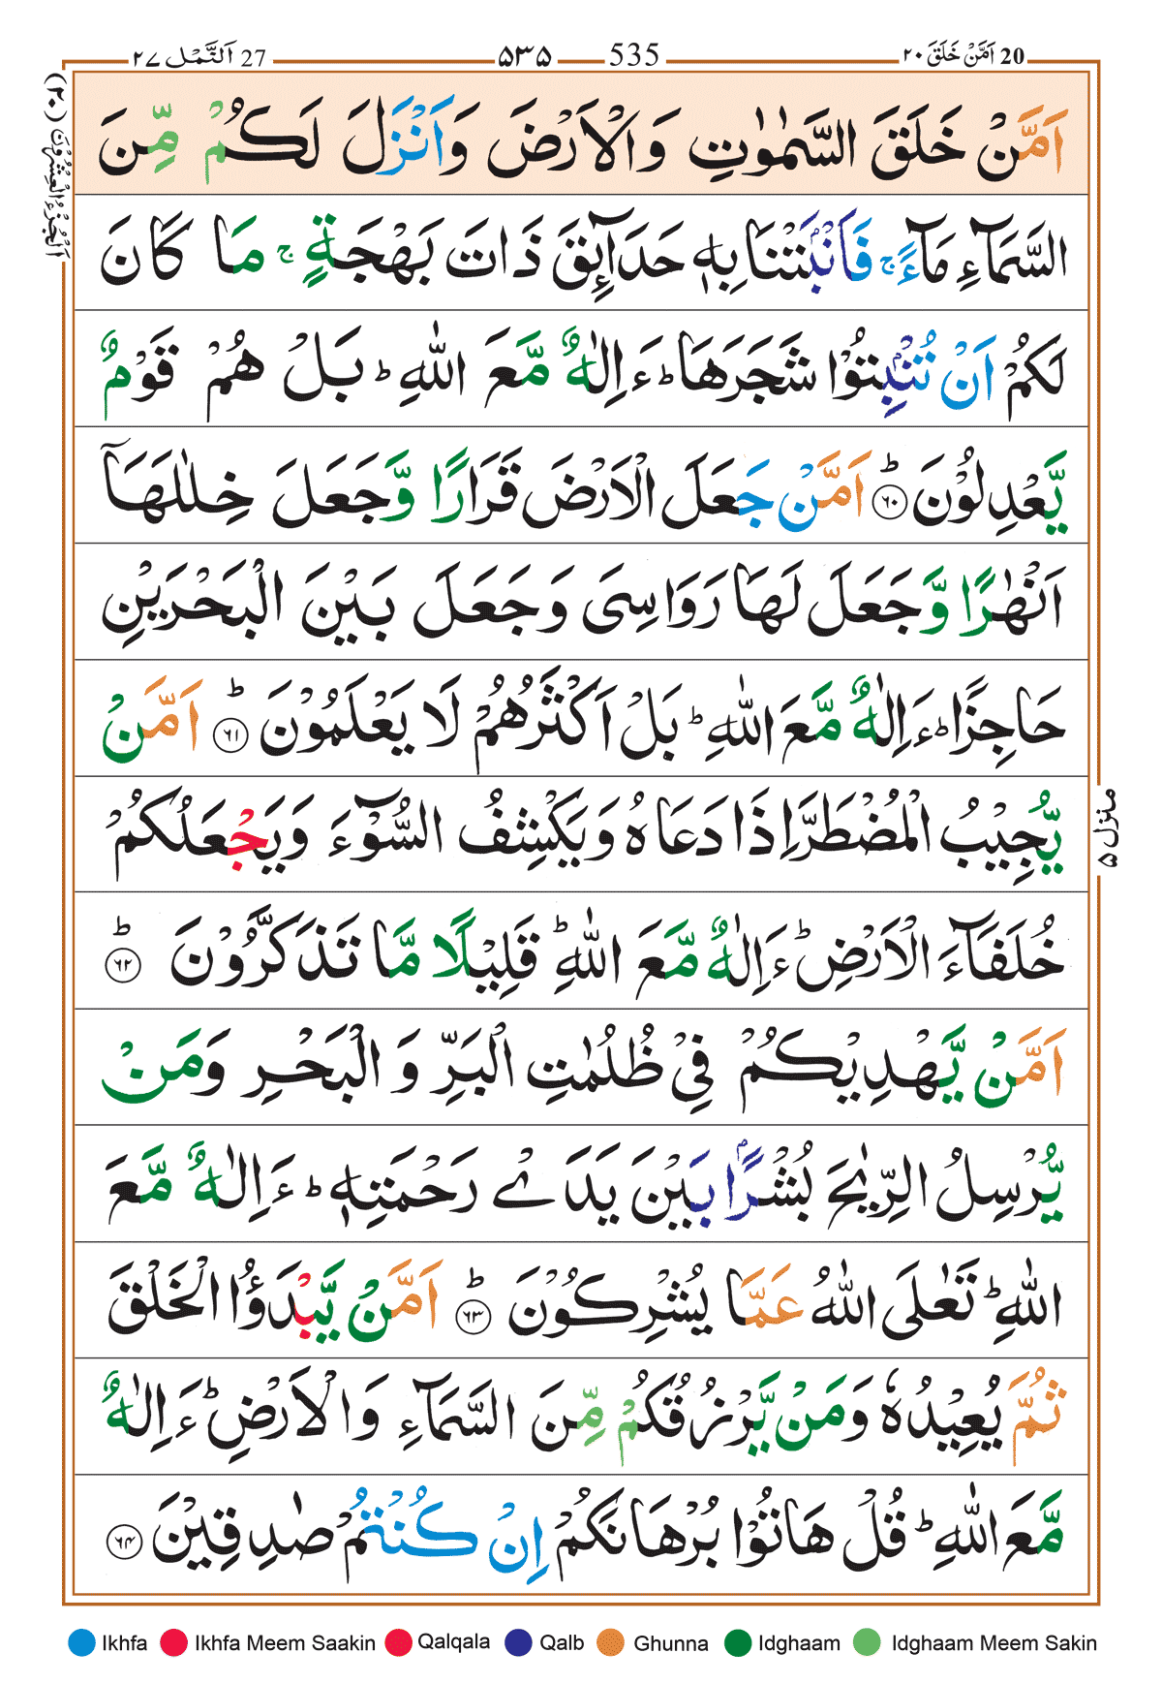 20 اَمَّنْ خَلَقَ ٢٠ 535 ۵۳۵ 27 اَلنَّمْل ٢٧
اَلْجُزْءُ الْعِشْرُوْنَ (٢٠)
اَمَّنْ خَلَقَ السَّمٰوٰتِ وَالْاَرْضَ وَاَنْزَلَ لَكُمْ مِّنَ
السَّمَآءِ مَآءًۚ فَاَنْۢبَتْنَا بِهٖ حَدَآئِقَ ذَاتَ بَهْجَةٍۚ مَا كَانَ
لَكُمْ اَنْ تُنْۢبِتُوْا شَجَرَهَاؕ ءَاِلٰهٌ مَّعَ اللّٰهِؕ بَلْ هُمْ قَوْمٌ
يَّعْدِلُوْنَؕ ﴿٦٠﴾ اَمَّنْ جَعَلَ الْاَرْضَ قَرَارًا وَّجَعَلَ خِلٰلَهَاۤ
اَنْهٰرًا وَّجَعَلَ لَهَا رَوَاسِىَ وَجَعَلَ بَيْنَ الْبَحْرَيْنِ
حَاجِزًاؕ ءَاِلٰهٌ مَّعَ اللّٰهِؕ بَلْ اَكْثَرُهُمْ لَا يَعْلَمُوْنَؕ ﴿٦١﴾ اَمَّنْ
يُّجِيْبُ الْمُضْطَرَّ اِذَا دَعَاهُ وَيَكْشِفُ السُّوْٓءَ وَيَجْعَلُكُمْ
خُلَفَآءَ الْاَرْضِؕ ءَاِلٰهٌ مَّعَ اللّٰهِؕ قَلِيْلًا مَّا تَذَكَّرُوْنَؕ ﴿٦٢﴾
اَمَّنْ يَّهْدِيْكُمْ فِىْ ظُلُمٰتِ الْبَرِّ وَ الْبَحْرِ وَمَنْ
يُّرْسِلُ الرِّيٰحَ بُشْرًۢا بَيْنَ يَدَىْ رَحْمَتِهٖؕ ءَاِلٰهٌ مَّعَ
اللّٰهِؕ تَعٰلَى اللّٰهُ عَمَّا يُشْرِكُوْنَؕ ﴿٦٣﴾ اَمَّنْ يَّبْدَؤُا الْخَلْقَ
ثُمَّ يُعِيْدُهٗ وَمَنْ يَّرْزُقُكُمْ مِّنَ السَّمَآءِ وَالْاَرْضِؕ ءَاِلٰهٌ
مَّعَ اللّٰهِؕ قُلْ هَاتُوْا بُرْهَانَكُمْ اِنْ كُنْتُمْ صٰدِقِيْنَ ﴿٦٤﴾
منزل ۵
Ikhfa Ikhfa Meem Saakin Qalqala Qalb Ghunna Idghaam Idghaam Meem Sakin